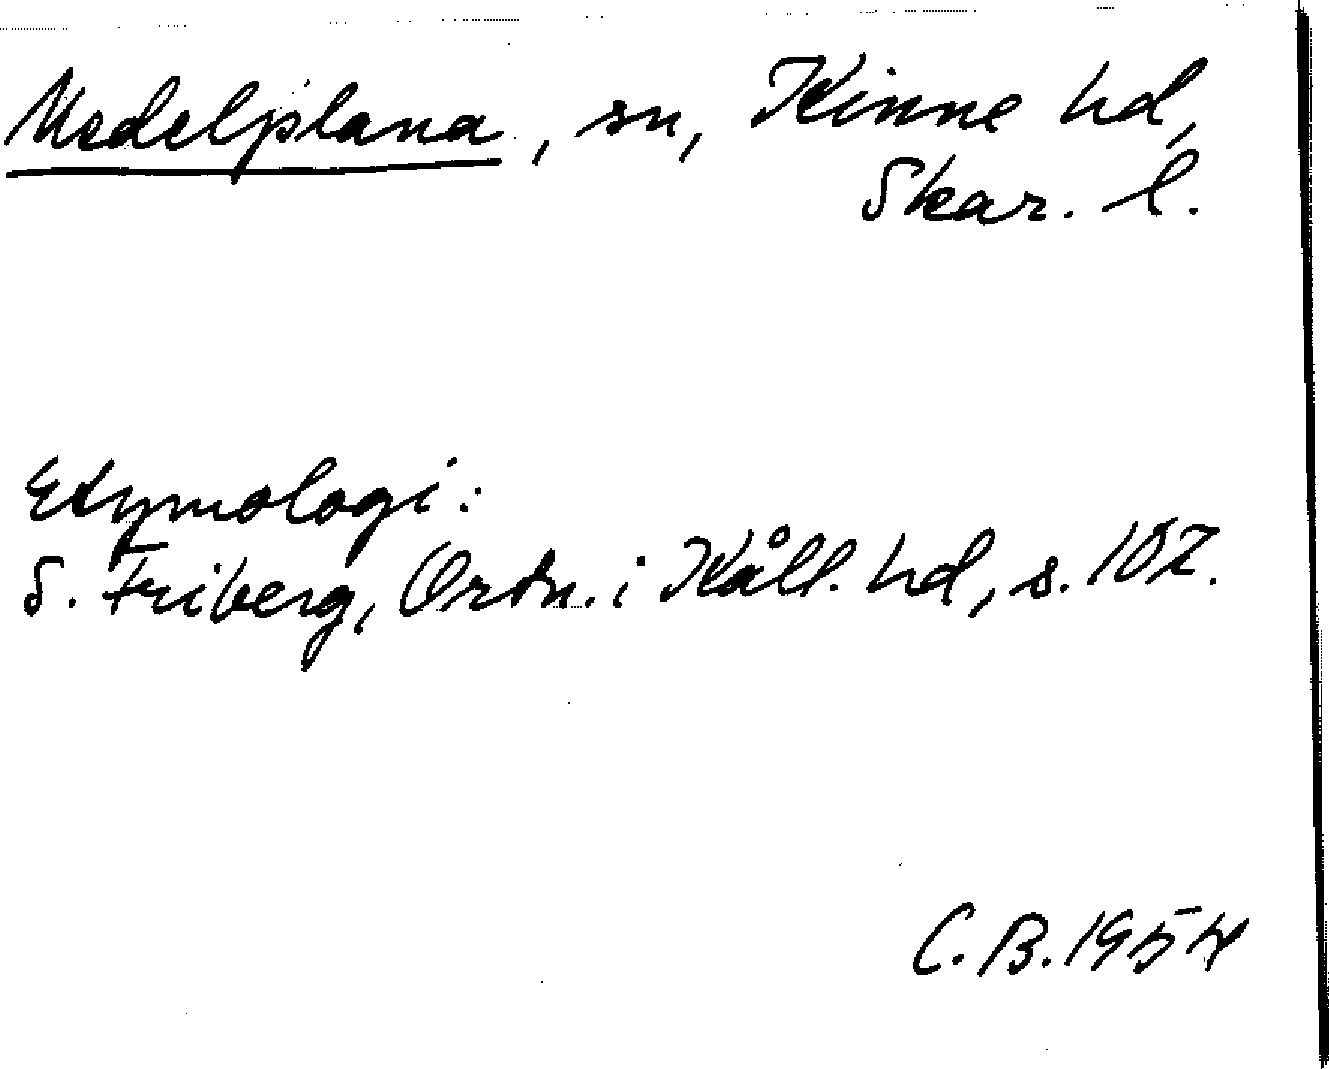 Medelplana, sn, Kinne hd,
Skar. l.
Etymologi:
S. Friberg, Ortn. i Kåll. hd, s. 107.
C. B. 1954